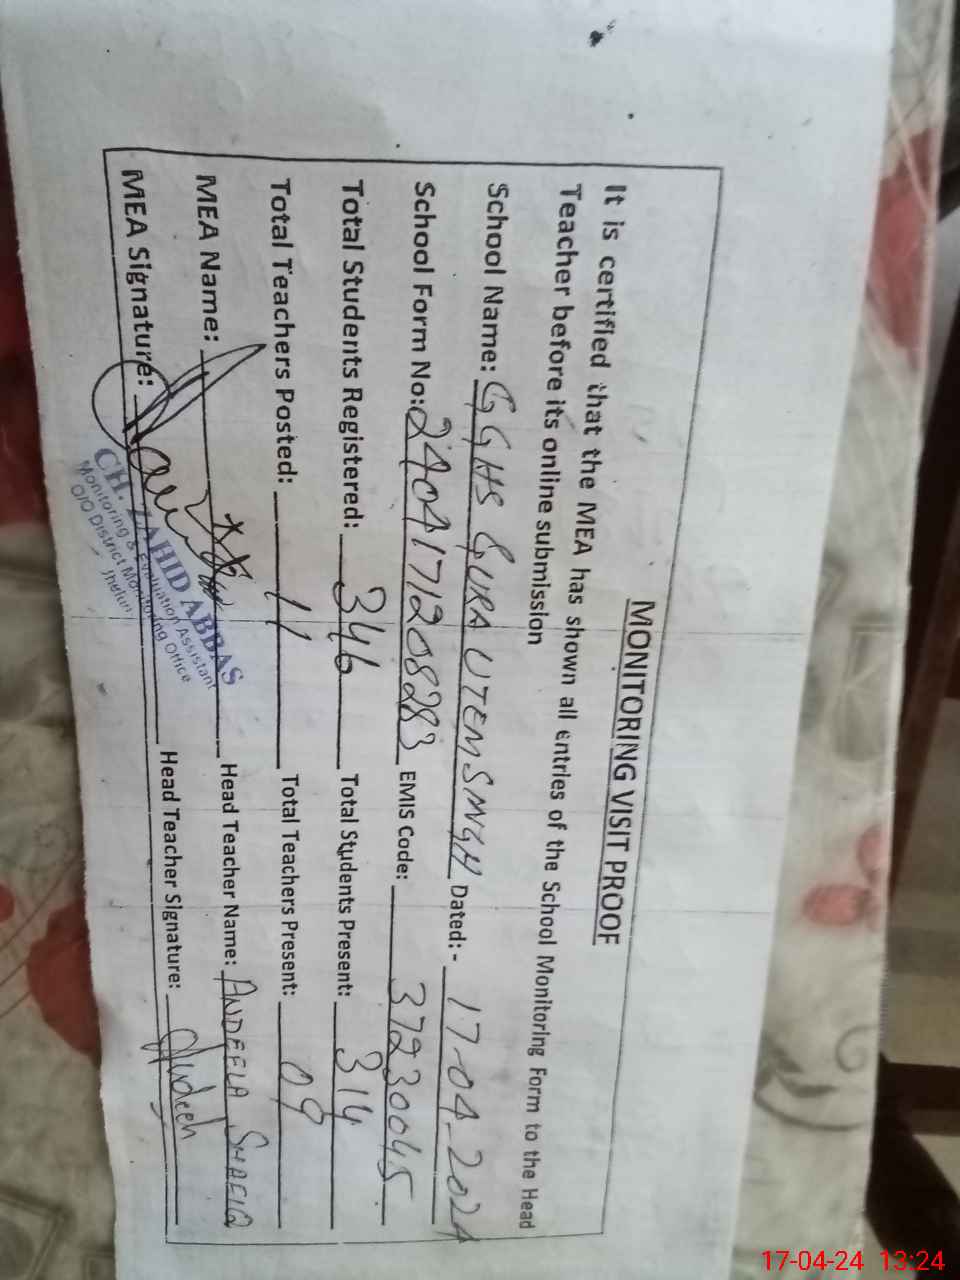 MONITORING VISIT PROOF
It is certified that the MEA has shown all entries of the School Monitoring Form to the Head
Teacher before its online submission
School Name: GGHS GURA UTEM SINGH Dated:- 17-04-2024
School Form No: 2404171208283 EMIS Code: 37230045
Total Students Registered: 346 Total Students Present: 314
Total Teachers Posted: 11 Total Teachers Present: 09
MEA Name: Head Teacher Name: ANDEELA SHAFIQ
MEA Signature: Head Teacher Signature:
CH. ZAHID ABBAS
Monitoring & Evaluation Assistant
O/O District Monitoring Office
Jhelum
17-04-24 13:24